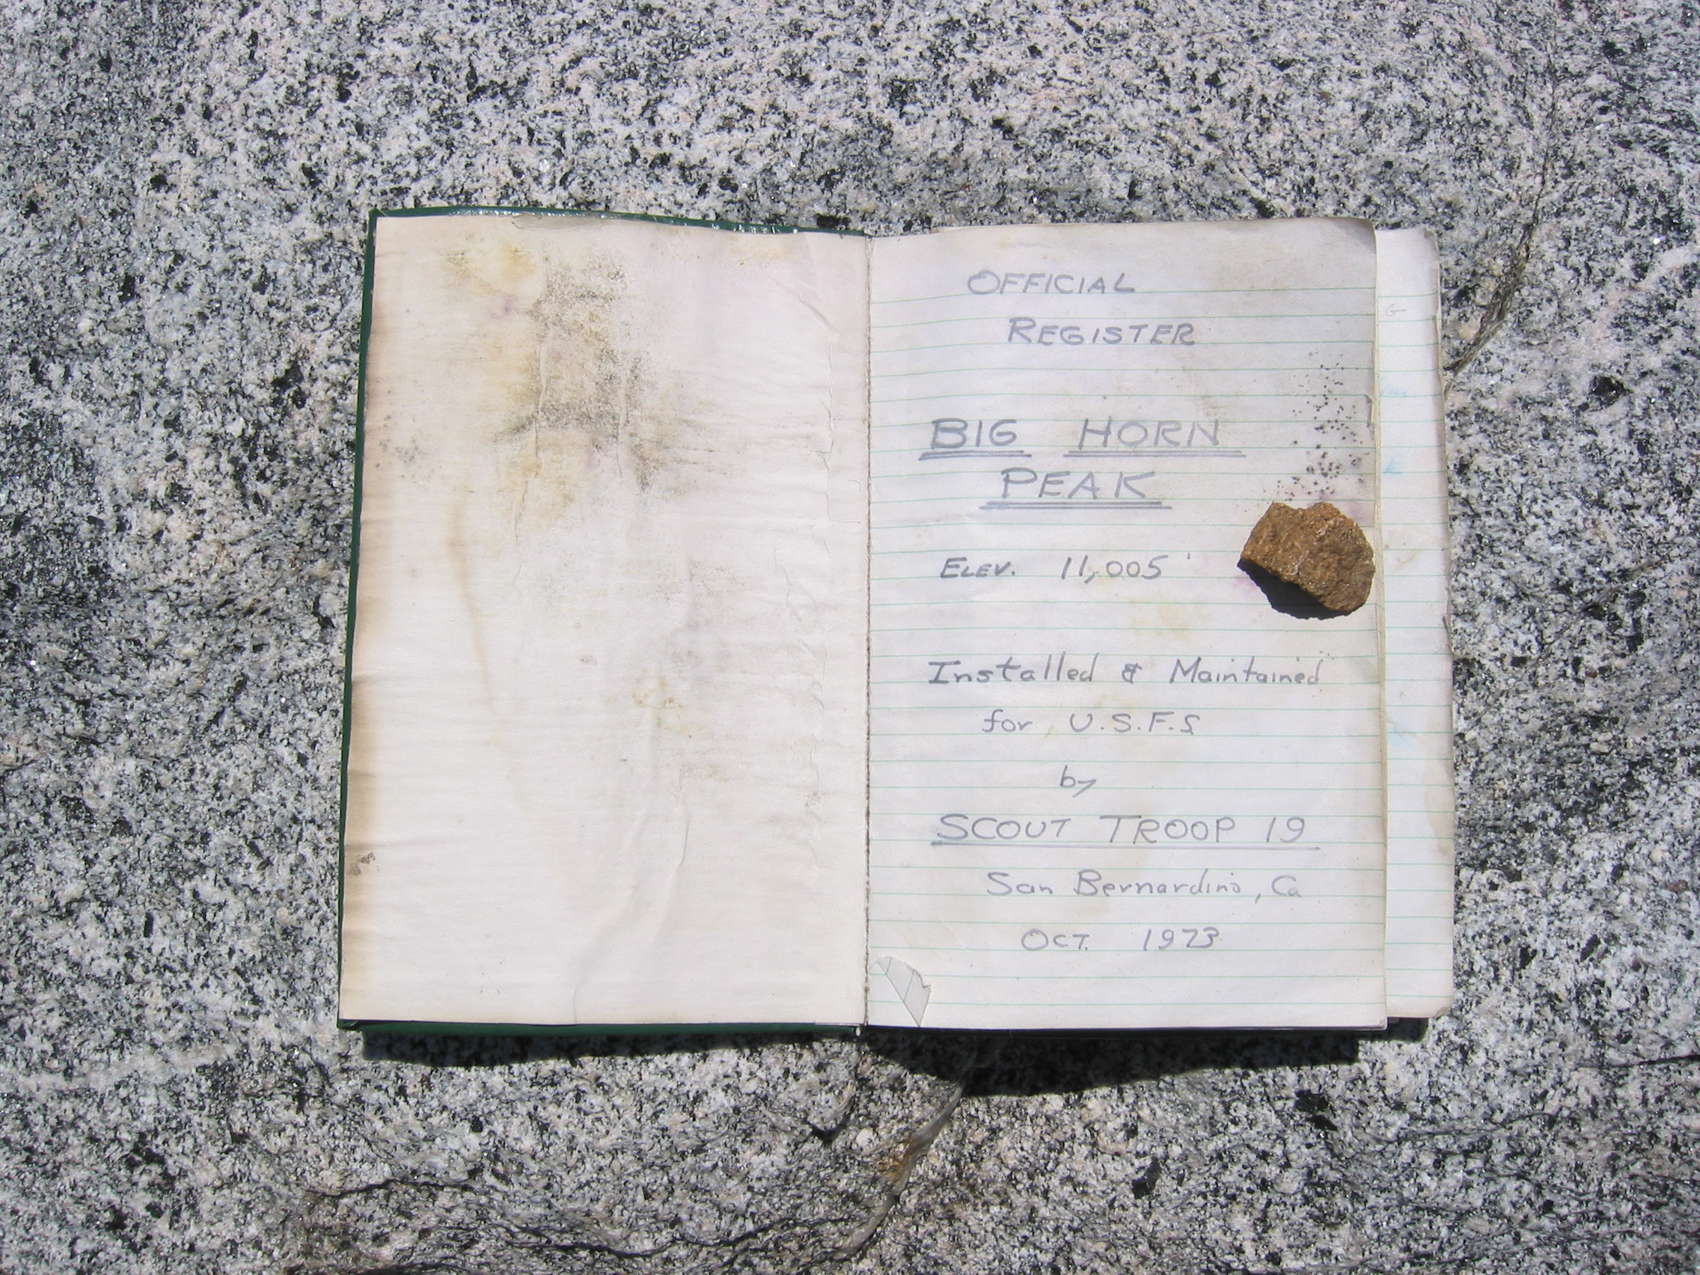 OFFICIAL
REGISTER
BIG HORN
PEAK
ELEV. 11,005'
Installed & Maintained
for U.S.F.S
by
SCOUT TROOP 19
San Bernardino, Ca
OCT. 1973